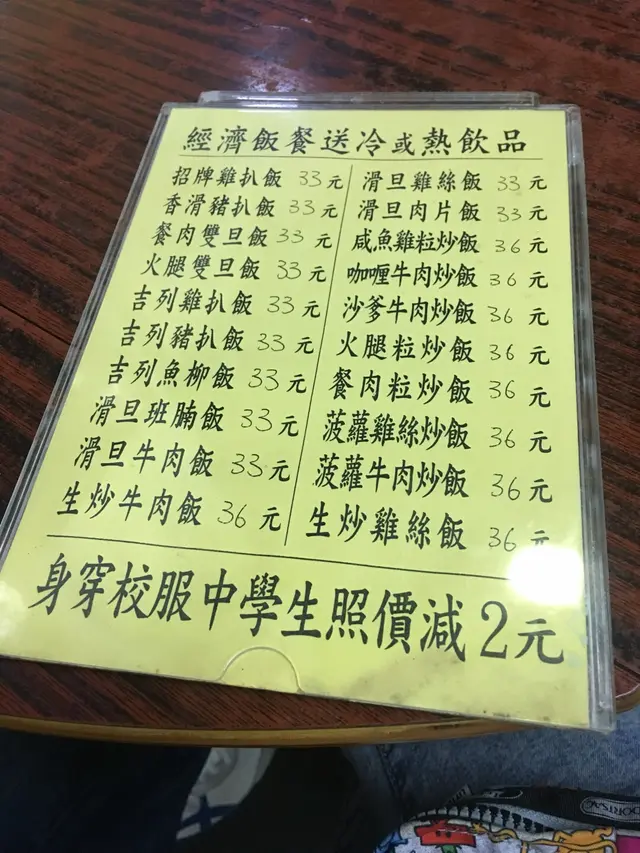 經濟飯餐送冷或熱飲品
招牌雞扒飯 33元
香滑豬扒飯 33元
餐肉雙旦飯 33元
火腿雙旦飯 33元
吉列雞扒飯 33元
吉列豬扒飯 33元
吉列魚柳飯 33元
滑旦班腩飯 33元
滑旦牛肉飯 33元
生炒牛肉飯 36元
滑旦雞絲飯 33元
滑旦肉片飯 33元
咸魚雞粒炒飯 36元
咖喱牛肉炒飯 36元
沙爹牛肉炒飯 36元
火腿粒炒飯 36元
餐肉粒炒飯 36元
菠蘿雞絲炒飯 36元
菠蘿牛肉炒飯 36元
生炒雞絲飯 36元
身穿校服中學生照價減2元